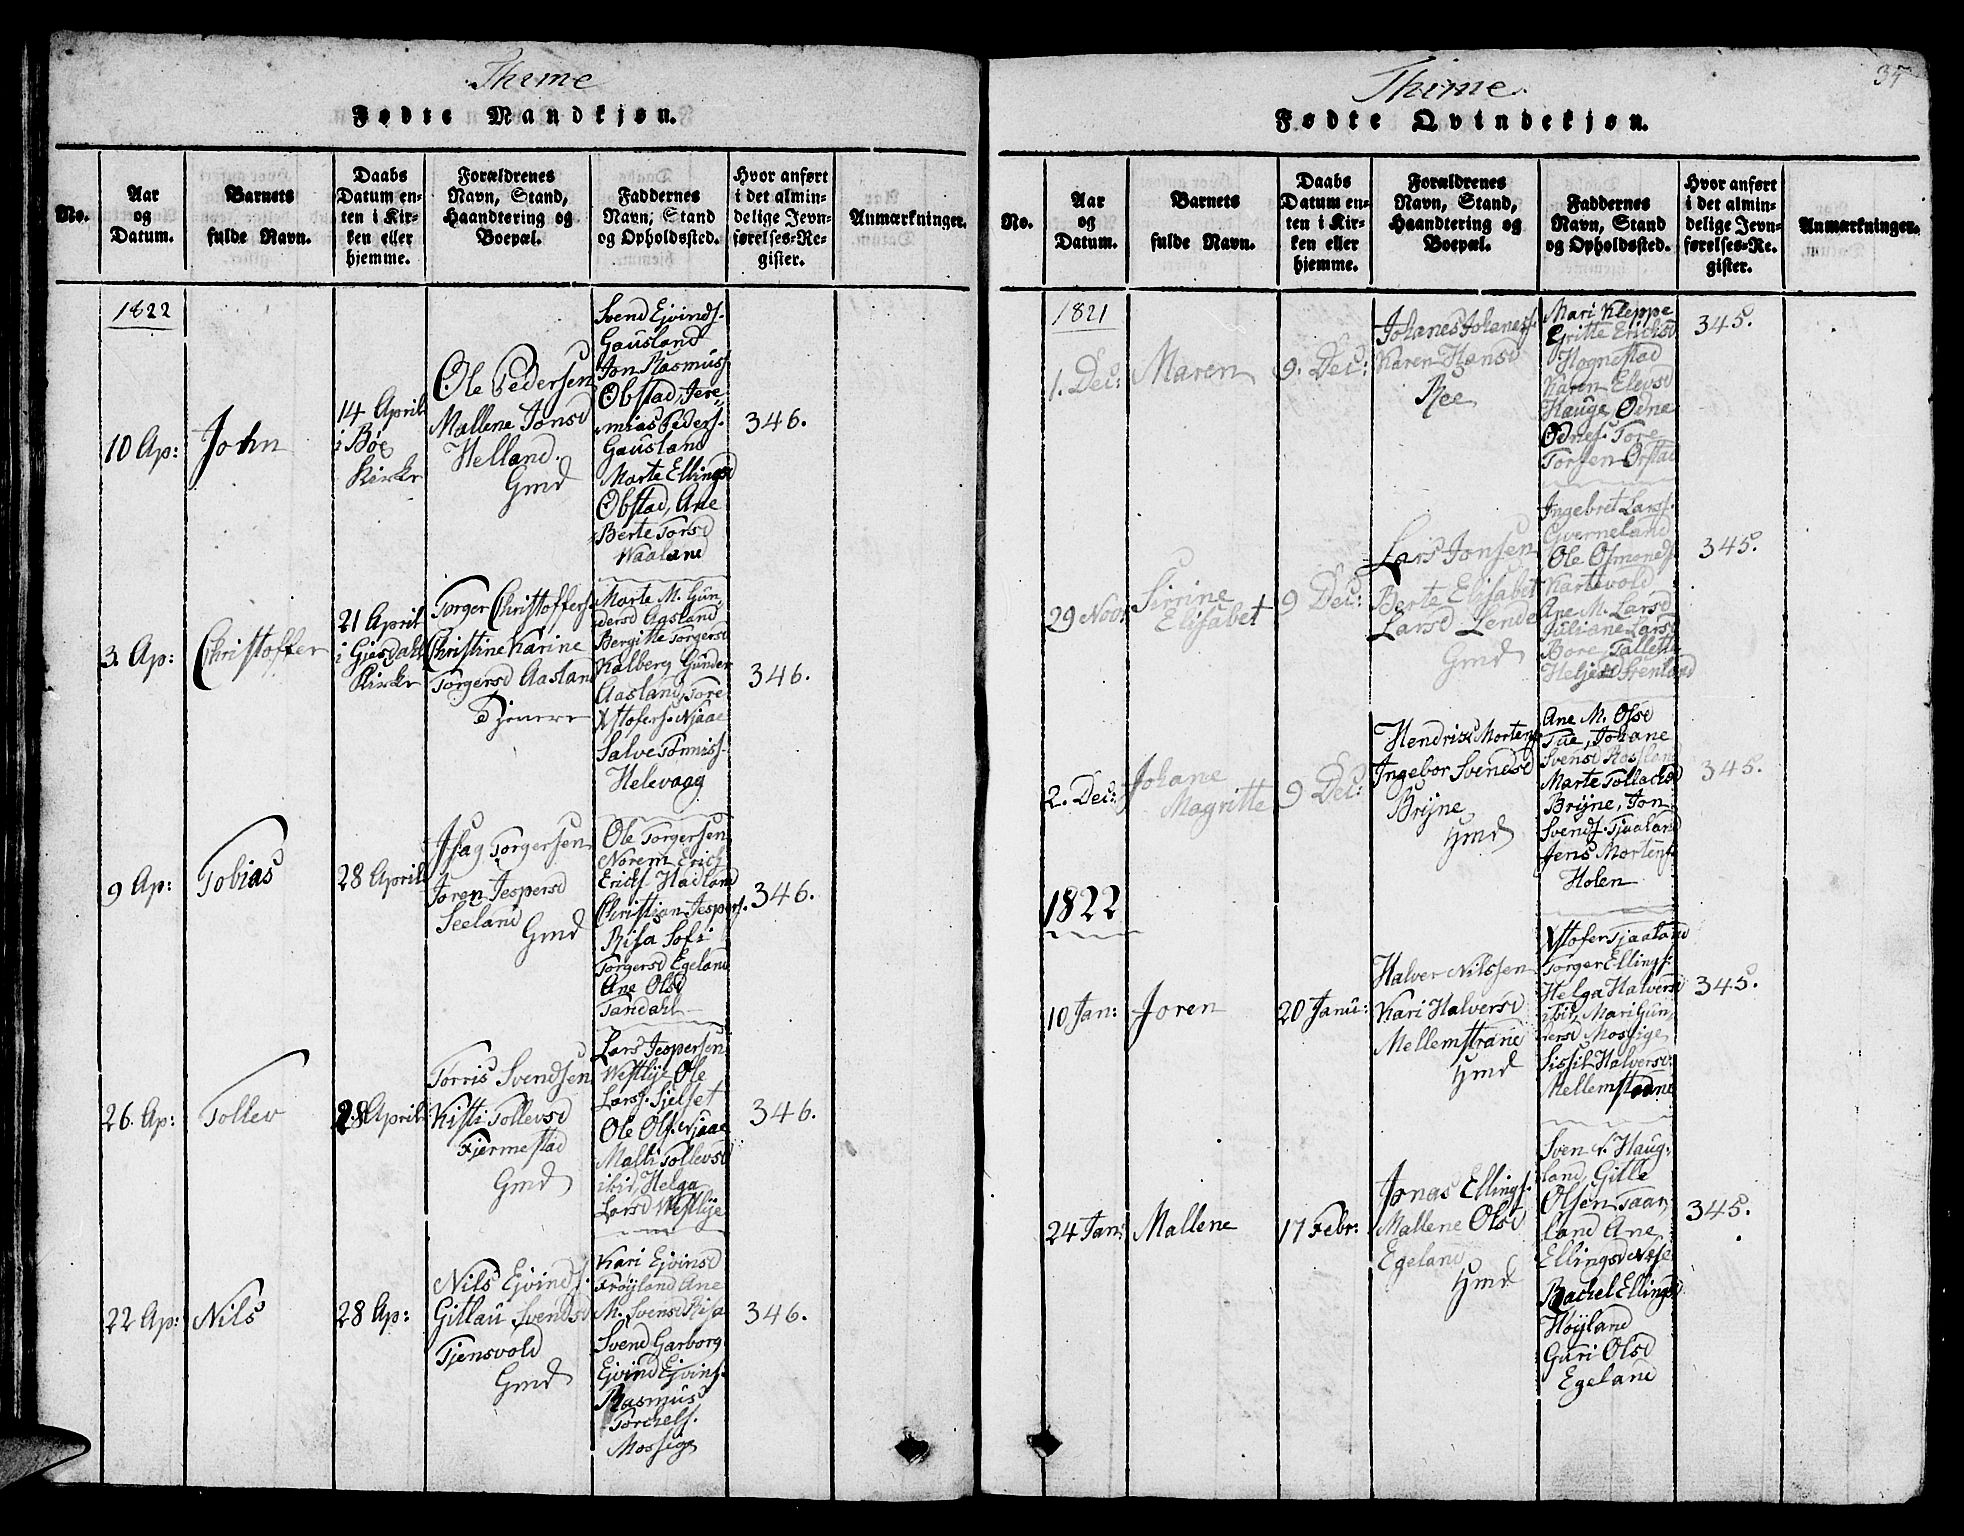 Thime
Fødte Mandkjøn.
No.
Aar
og
Datum.
Barnets
fulde Navn.
Daabs
Datum en-
ten i Kir-
ken eller
hjemme.
Forældrenes
Navn, Stand,
Haandtering og
Boepæl.
Faddernes
Navn, Stand
og Opholdssted.
Hvor anført
i det almin-
delige Jevn-
førelses-Re-
gister.
Anmærkninger.
1822
10 Ap:
John
14 April
i Boe
Kirke
Ole Pedersen
Mallene Jonsd
Helland.
Gmd
Svend Ejvinds.
Gausland
Jon Rasmuss
Obstad, Jere-
mias Peders.
Gausland
Marte Ellingsd
Obstad, Ane
Berte Torsd
Waaland
346.
3. Ap:
Christoffer
21 April
i Giesdahl
Kirke
Torger Christoffers.
Christine Karine
Torgersd Aasland
Tjenere
Marte M. Gun,
dersd Aasland
Bergitte Torgersd
Kalberg Gunder
Aasland, Tore
Xstofers. Njaae
Salve Tønniss.
Helevaag
346.
9 Ap:
Tobias
28 April
Isag Torgersen
Joren Jespersd
Seeland
Gmd
Ole Torgersen
Norem Erich
Ericks Hadland
Christian Jespers.
Risa Sofi
Torgersd Egeland
Ane Olsd
Tarldahl
346.
26. Ap:
Tollev
28 April
Torris Svendsen
Kisti Tollevsd
Fjermestad
Gmd
Lars Jespersen
Westlye Ole
Lars. Sjelset
Ole Ols. Njaae
Malli Tollevsd
ibid, Helga
Larsd Westlye
346.
22 Ap:
Nils
28 Ap:
Nils Ejvinds.
Gitlau Svendsd
Tjensvold
Gmd
Kari Ejvinsd
Frøyland Ane
M. Svensd Risa
Svend Garborg
Ejvind Ejvins.
Rasmus
Torchels.
Mossige
346.
35
Thime.
Fødte Qvindekjøn.
No.
Aar
og
Datum.
Barnets
fulde Navn.
Daabs
Datum en-
ten i Kir-
ken eller
hjemme.
Forældrenes
Navn, Stand,
Haandtering og
Boepæl.
Faddernes
Navn, Stand
og Opholdssted.
Hvor anført
i det almin-
delige Jevn-
førelses-Re-
gister.
Anmærkninger.
1821
1. Dec:
Maren
9. Dec:
Johanes Johaness.
Karen Hansd
Ree
Mari Kleppe
Gritte Ericksd
Hognestad
Karen Elevsd
Hauge, Odne
Odnes. Tore
Torsen Orstad
345.
29 Nov:
Sirine
Elisabet
9 Dec:
Lars Jonsen
Berte Elisabet
Larsd Lende
Gmd
Ingebret Lars.
Qverneland
Ole Osmonds
Kartevold
Ane M. Larsd
Juliane Larsd
Bore, Tallette
Heljesd Grenland
345.
2. Dec:
Johane
Magritte
9 Dec:
Hendrik Mortens.
Ingebor Svendsd
Bryne
Gmd
Ane M. Olsd
Tue, Johane
Svensd Rosland
Marte Tollacksd
Bryne, Jon
Svends. Tjaaland
Jens Mortens.
Holen
345.
1822
10 Jan:
Joren
20 Janu:
Halver Nilssen
Kari Halversd
Mellemstrand
Gmd
Xstofer Tjaaland
Torger Ellings.
Helga Halversd
ibid, Mari Gun,
dersd Mossige
Sissil Halversd:
Mellemstrand
345.
24 Jan:
Mallene
17 Febr:
Jonas Ellings.
Mallene Olsd
Egeland
Gmd
Sven S. Haug,
land, Gitle
Olsen Taar,
land Ane
Ellingsd Nese
Rachel Ellingsd
Høyland
Guri Olsd
Egeland
345.